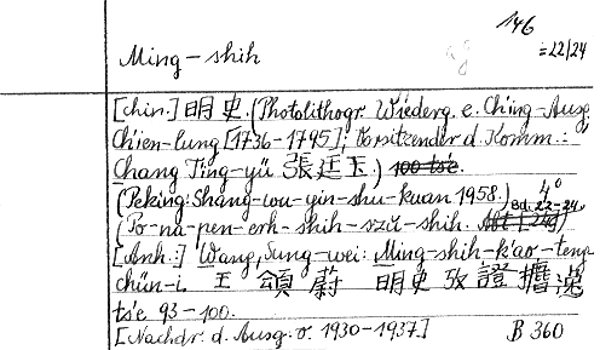 146
Ming-shih =22/24
[chin.] 明史. (Photolithogr. Wiederg. e. Ch'ing-Ausg.
Ch'ien-lung [1736-1795]; Vorsitzender d. Komm.:
Chang T'ing-yü 張廷玉.) 100 ts'e.
(Peking: Shang-wu-yin-shu-kuan 1958.) 4°
(Po-na-pen-erh-shih-szŭ-shih. Bd. 22-24.)
[Anh.:] Wang, Sung-wei: Ming-shih-k'ao-teng-
chün-i. 王頌蔚 明史攷證攟逸
ts'e 93-100.
[Nachdr. d. Ausg. v. 1930-1937.] B 360